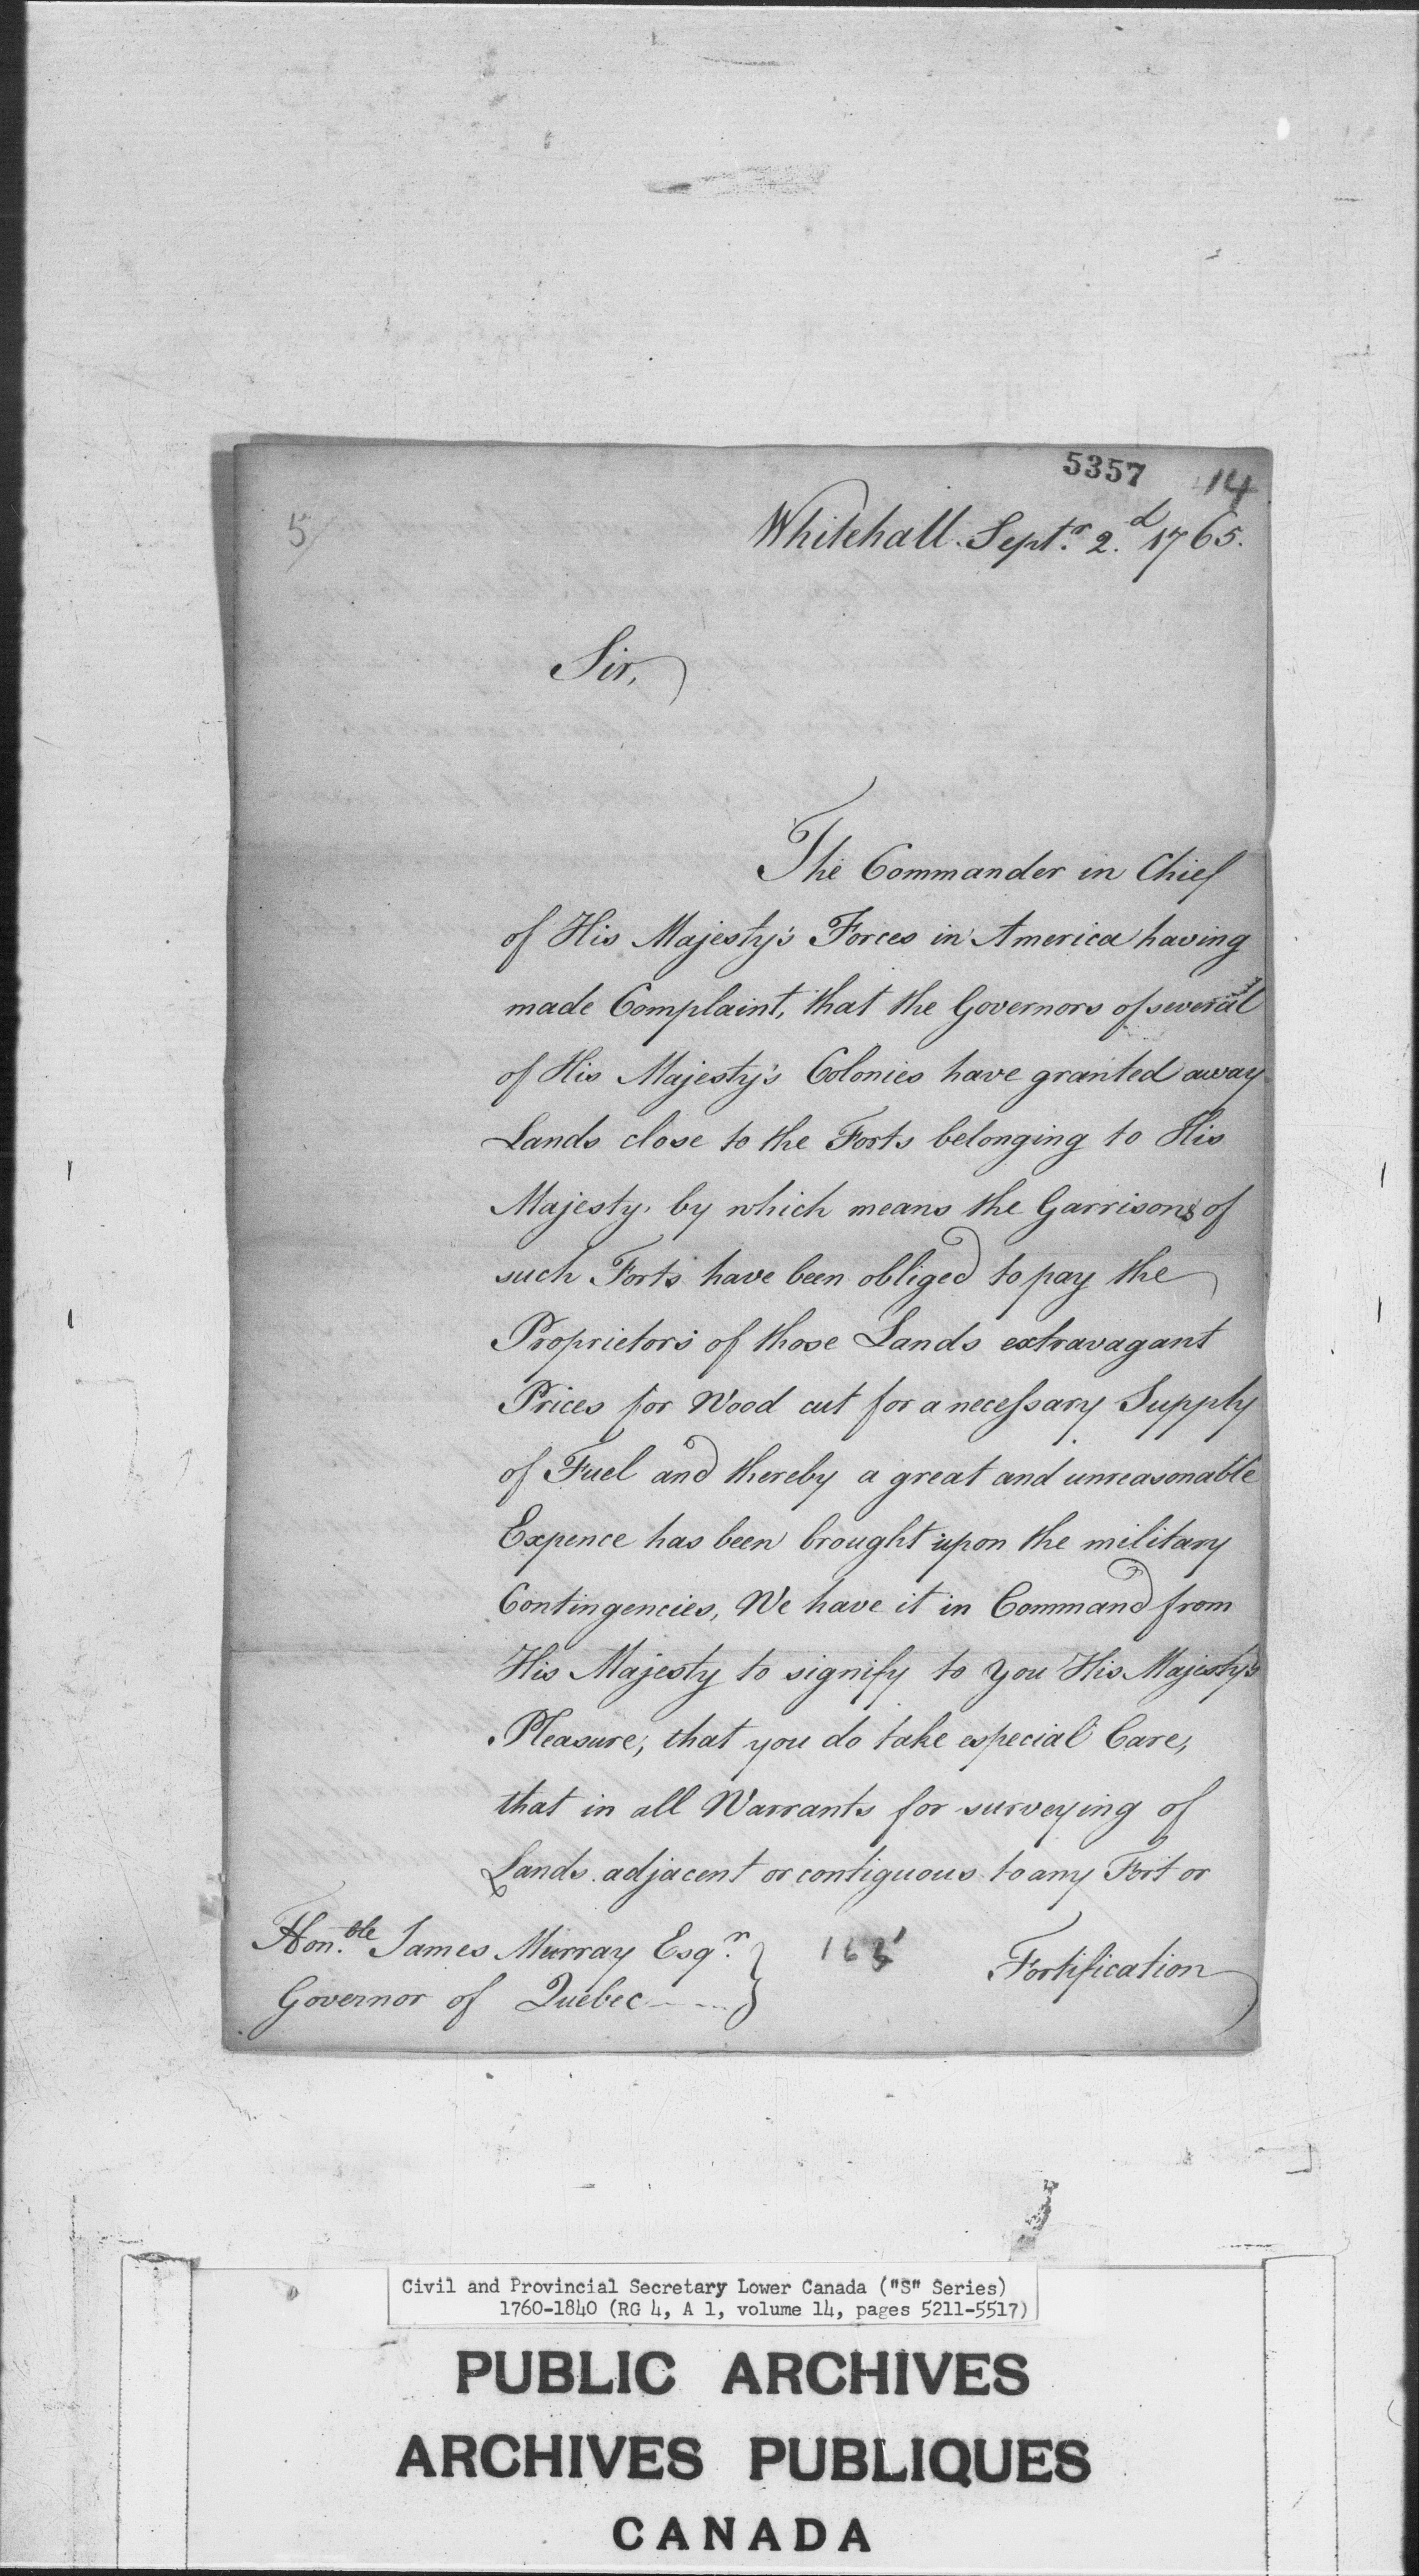 5357 14
5/
Whitehall Septr. 2d. 1765.
Sir,
The Commander in Chief
of His Majesty's Forces in America having
made Complaint, that the Governors of several
of His Majesty's Colonies have granted away
Lands close to the Forts belonging to His
Majesty, by which means the Garrisons of
such Forts have been obliged to pay the
Proprietors of those Lands extravagant
Prices for Wood cut for a necessary Supply
of Fuel and thereby a great and unreasonable
Expence has been brought upon the military
Contingencies, We have it in Command from
His Majesty to signify to you His Majesty's
Pleasure, that you do take especial Care,
that in all Warrants for surveying of
Lands adjacent or contiguous to any Fort or
Fortification
Honble. James Murray Esqr.
Governor of Quebec
Civil and Provincial Secretary Lower Canada ("S" Series)
1760-1840 (RG 4, A 1, volume 14, pages 5211-5517)
PUBLIC ARCHIVES
ARCHIVES PUBLIQUES
CANADA